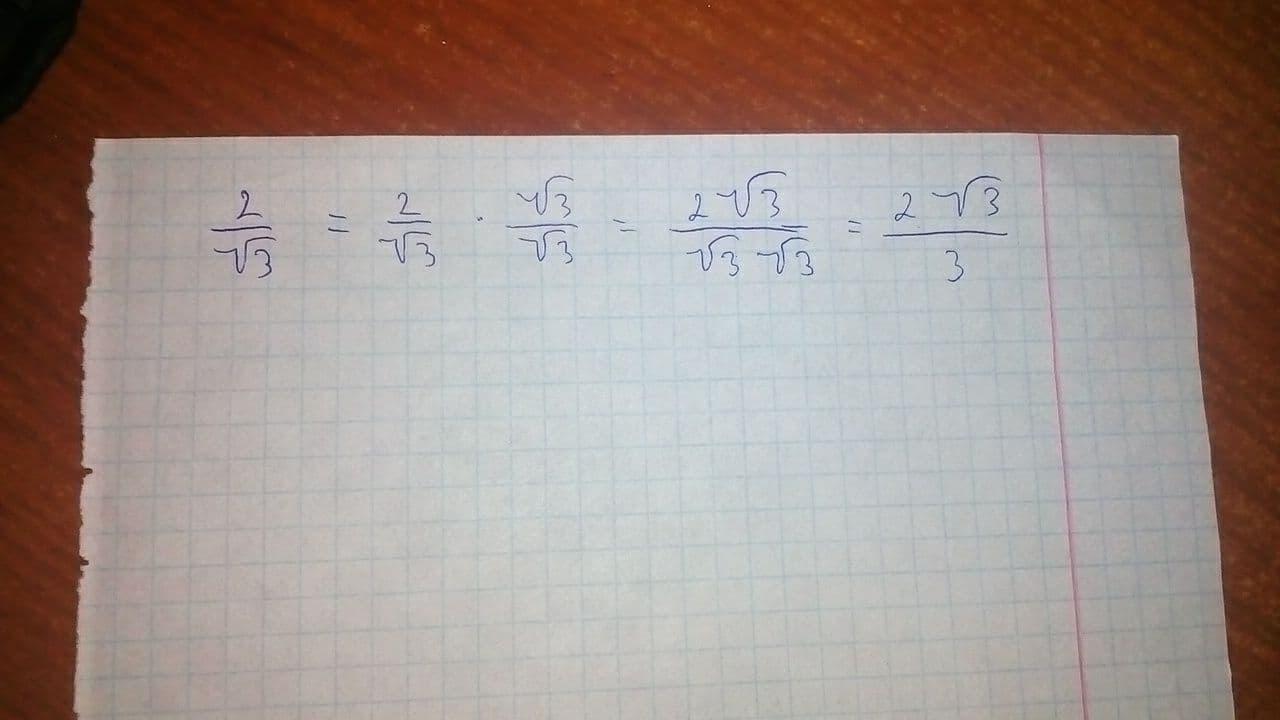 2/√3 = 2/√3 · √3/√3 = 2√3/√3 √3 = 2√3/3